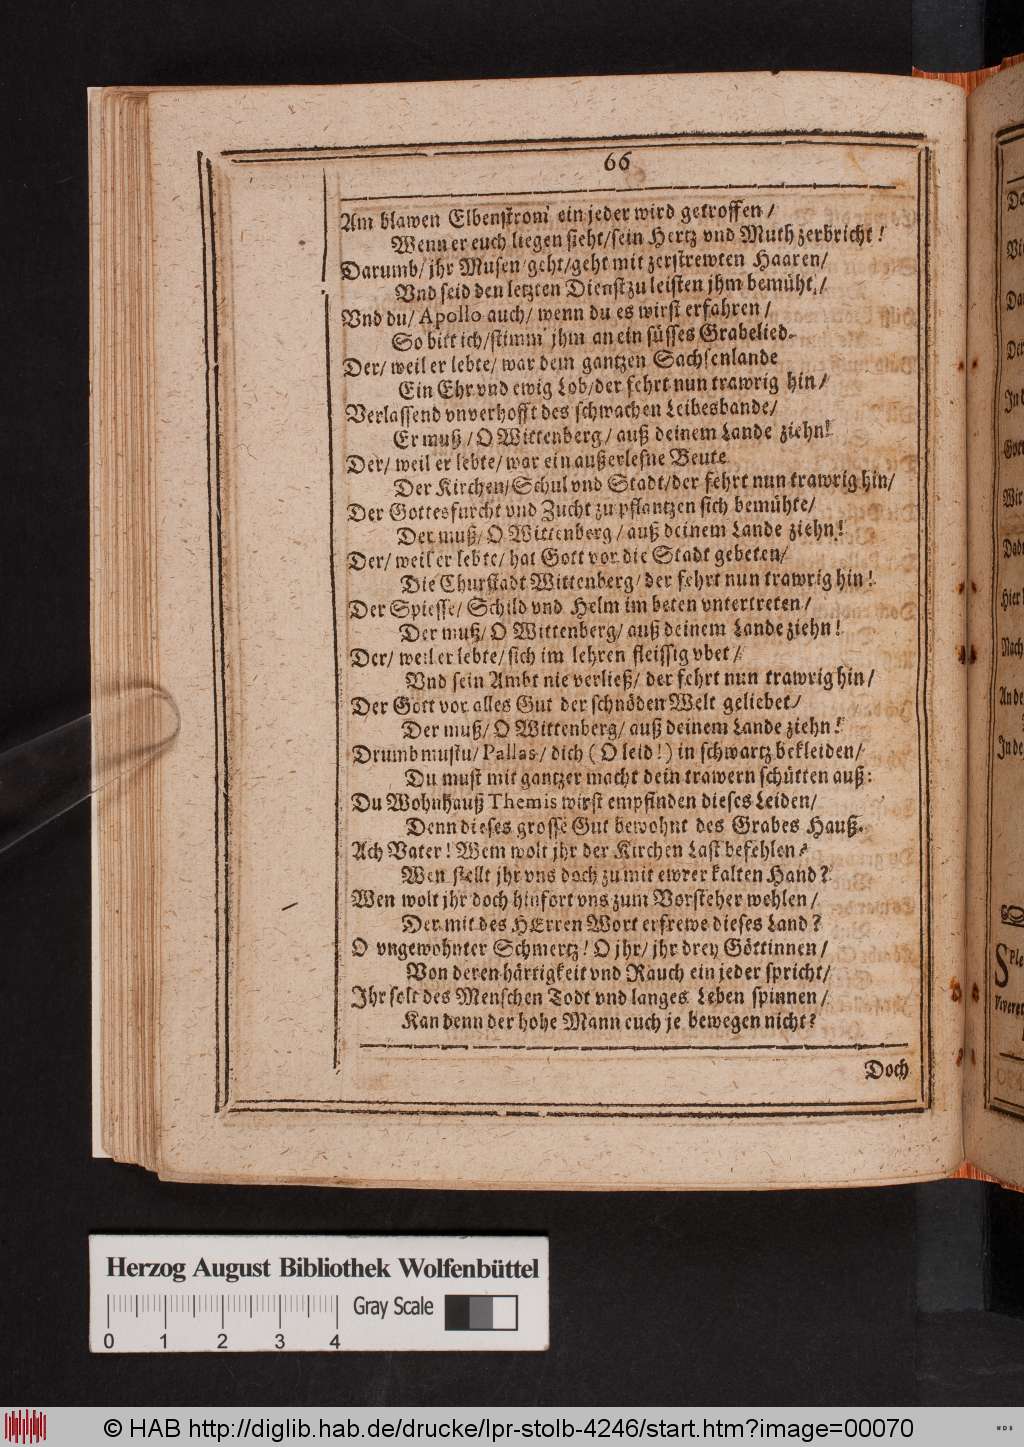 66
Am blawen Elbenstrom ein jeder wird getroffen /
Wenn er euch liegen sieht/sein Hertz vnd Muth zerbricht !
Darumb/ jhr Musen geht/geht mit zerstrewten Haaren/
Vnd seid den letzten Dienst zu leisten jhm bemüht /
Vnd du/ Apollo auch/ wenn du es wirst erfahren /
So bitt ich/stimm jhm an ein süsses Grabelied.
Der/ weil er lebte/ war dem gantzen Sachsenlande
Ein Ehr vnd ewig Lob/der fehrt nun trawrig hin/
Verlassend vnverhofft des schwachen Leibesbande/
Er muß / O Wittenberg/ auß deinem Lande ziehn!
Der/ weil er lebte/ war ein außerlesne Beute
Der Kirchen/Schul vnd Stadt/der fehrt nun trawrig hin/
Der Gottesfurcht vnd Zucht zu pflantzen sich bemühte/
Der muß/ O Wittenberg / auß deinem Lande ziehn !
Der/ weil er lebte/ hat Gott vor die Stadt gebeten/
Die Churstadt Wittenberg/ der fehrt nun trawrig hin !
Der Spiesse/ Schild vnd Helm im beten vntertreten /
Der muß/ O Wittenberg/ auß deinem Lande ziehn !
Der/ weil er lebte/ sich im lehren fleissig vbet /
Vnd sein Ambt nie verließ/ der fehrt nun trawrig hin /
Der Gott vor alles Gut der schnöden Welt geliebet /
Der muß/ O Wittenberg/ auß deinem Lande ziehn !
Drumb mustu/ Pallas/ dich ( O leid ! ) in schwartz bekleiden/
Du must mit gantzer macht dein trawern schütten auß:
Du Wohnhauß Themis wirst empfinden dieses Leiden/
Denn dieses grosse Gut bewohnt des Grabes Hauß.
Ach Vater ! Wem wolt jhr der Kirchen Last befehlen ?
Wen stellt jhr vns doch zu mit ewrer kalten Hand ?
Wen wolt jhr doch hinfort vns zum Vorsteher wehlen /
Der mit des HErren Wort erfrewe dieses Land ?
O vngewohnter Schmertz ! O jhr/ jhr drey Göttinnen /
Von deren härtigkeit vnd Rauch ein jeder spricht/
Ihr solt des Menschen Todt vnd langes Leben spinnen /
Kan denn der hohe Mann euch je bewegen nicht ?
Doch
Herzog August Bibliothek Wolfenbüttel
0 1 2 3 4
Gray Scale
© HAB http://diglib.hab.de/drucke/lpr-stolb-4246/start.htm?image=00070